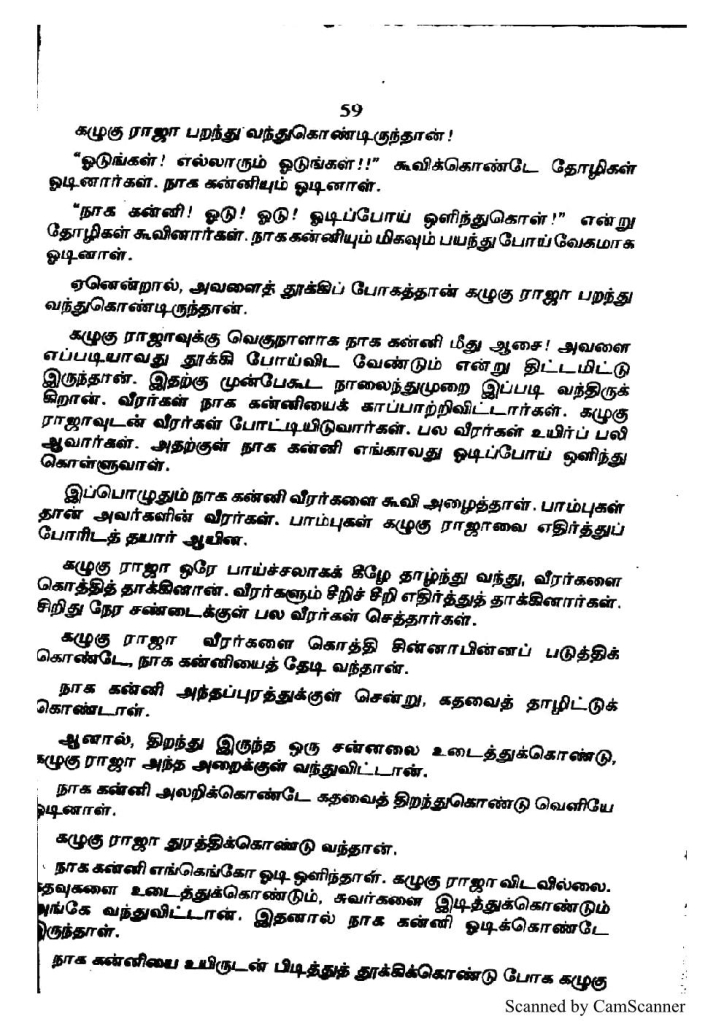 59
கழுகு ராஜா பறந்து வந்துகொண்டிருந்தான்!
“ஓடுங்கள்! எல்லாரும் ஓடுங்கள்!!” கூவிக்கொண்டே தோழிகள்
ஓடினார்கள். நாக கன்னியும் ஓடினாள்.
“நாக கன்னி! ஓடு! ஓடு! ஓடிப்போய் ஒளிந்துகொள்!” என்று
தோழிகள் கூவினார்கள். நாக கன்னியும் மிகவும் பயந்து போய் வேகமாக
ஓடினாள்.
ஏனென்றால், அவளைத் தூக்கிப் போகத்தான் கழுகு ராஜா பறந்து
வந்துகொண்டிருந்தான்.
கழுகு ராஜாவுக்கு வெகுநாளாக நாக கன்னி மீது ஆசை! அவளை
எப்படியாவது தூக்கி போய்விட வேண்டும் என்று திட்டமிட்டு
இருந்தான். இதற்கு முன்பேகூட நாலைந்துமுறை இப்படி வந்திருக்
கிறான். வீரர்கள் நாக கன்னியைக் காப்பாற்றிவிட்டார்கள். கழுகு
ராஜாவுடன் வீரர்கள் போட்டியிடுவார்கள். பல வீரர்கள் உயிர்ப் பலி
ஆவார்கள். அதற்குள் நாக கன்னி எங்காவது ஓடிப்போய் ஒளிந்து
கொள்ளுவாள்.
இப்பொழுதும் நாக கன்னி வீரர்களை கூவி அழைத்தாள். பாம்புகள்
தான் அவர்களின் வீரர்கள். பாம்புகள் கழுகு ராஜாவை எதிர்த்துப்
போரிடத் தயார் ஆயின.
கழுகு ராஜா ஒரே பாய்ச்சலாகக் கீழே தாழ்ந்து வந்து, வீரர்களை
கொத்தித் தாக்கினான். வீரர்களும் சீறிச் சீறி எதிர்த்துத் தாக்கினார்கள்.
சிறிது நேர சண்டைக்குள் பல வீரர்கள் செத்தார்கள்.
கழுகு ராஜா வீரர்களை கொத்தி சின்னாபின்னப் படுத்திக்
கொண்டே, நாக கன்னியைத் தேடி வந்தான்.
நாக கன்னி அந்தப்புரத்துக்குள் சென்று, கதவைத் தாழிட்டுக்
கொண்டாள்.
ஆனால், திறந்து இருந்த ஒரு சன்னலை உடைத்துக்கொண்டு,
கழுகு ராஜா அந்த அறைக்குள் வந்துவிட்டான்.
நாக கன்னி அலறிக்கொண்டே கதவைத் திறந்துகொண்டு வெளியே
ஓடினாள்.
கழுகு ராஜா துரத்திக்கொண்டு வந்தான்.
நாக கன்னி எங்கெங்கோ ஓடி ஒளிந்தாள். கழுகு ராஜா விடவில்லை.
கதவுகளை உடைத்துக்கொண்டும், சுவர்களை இடித்துக்கொண்டும்
அங்கே வந்துவிட்டான். இதனால் நாக கன்னி ஓடிக்கொண்டே
இருந்தாள்.
நாக கன்னியை உயிருடன் பிடித்துத் தூக்கிக்கொண்டு போக கழுகு
Scanned by CamScanner